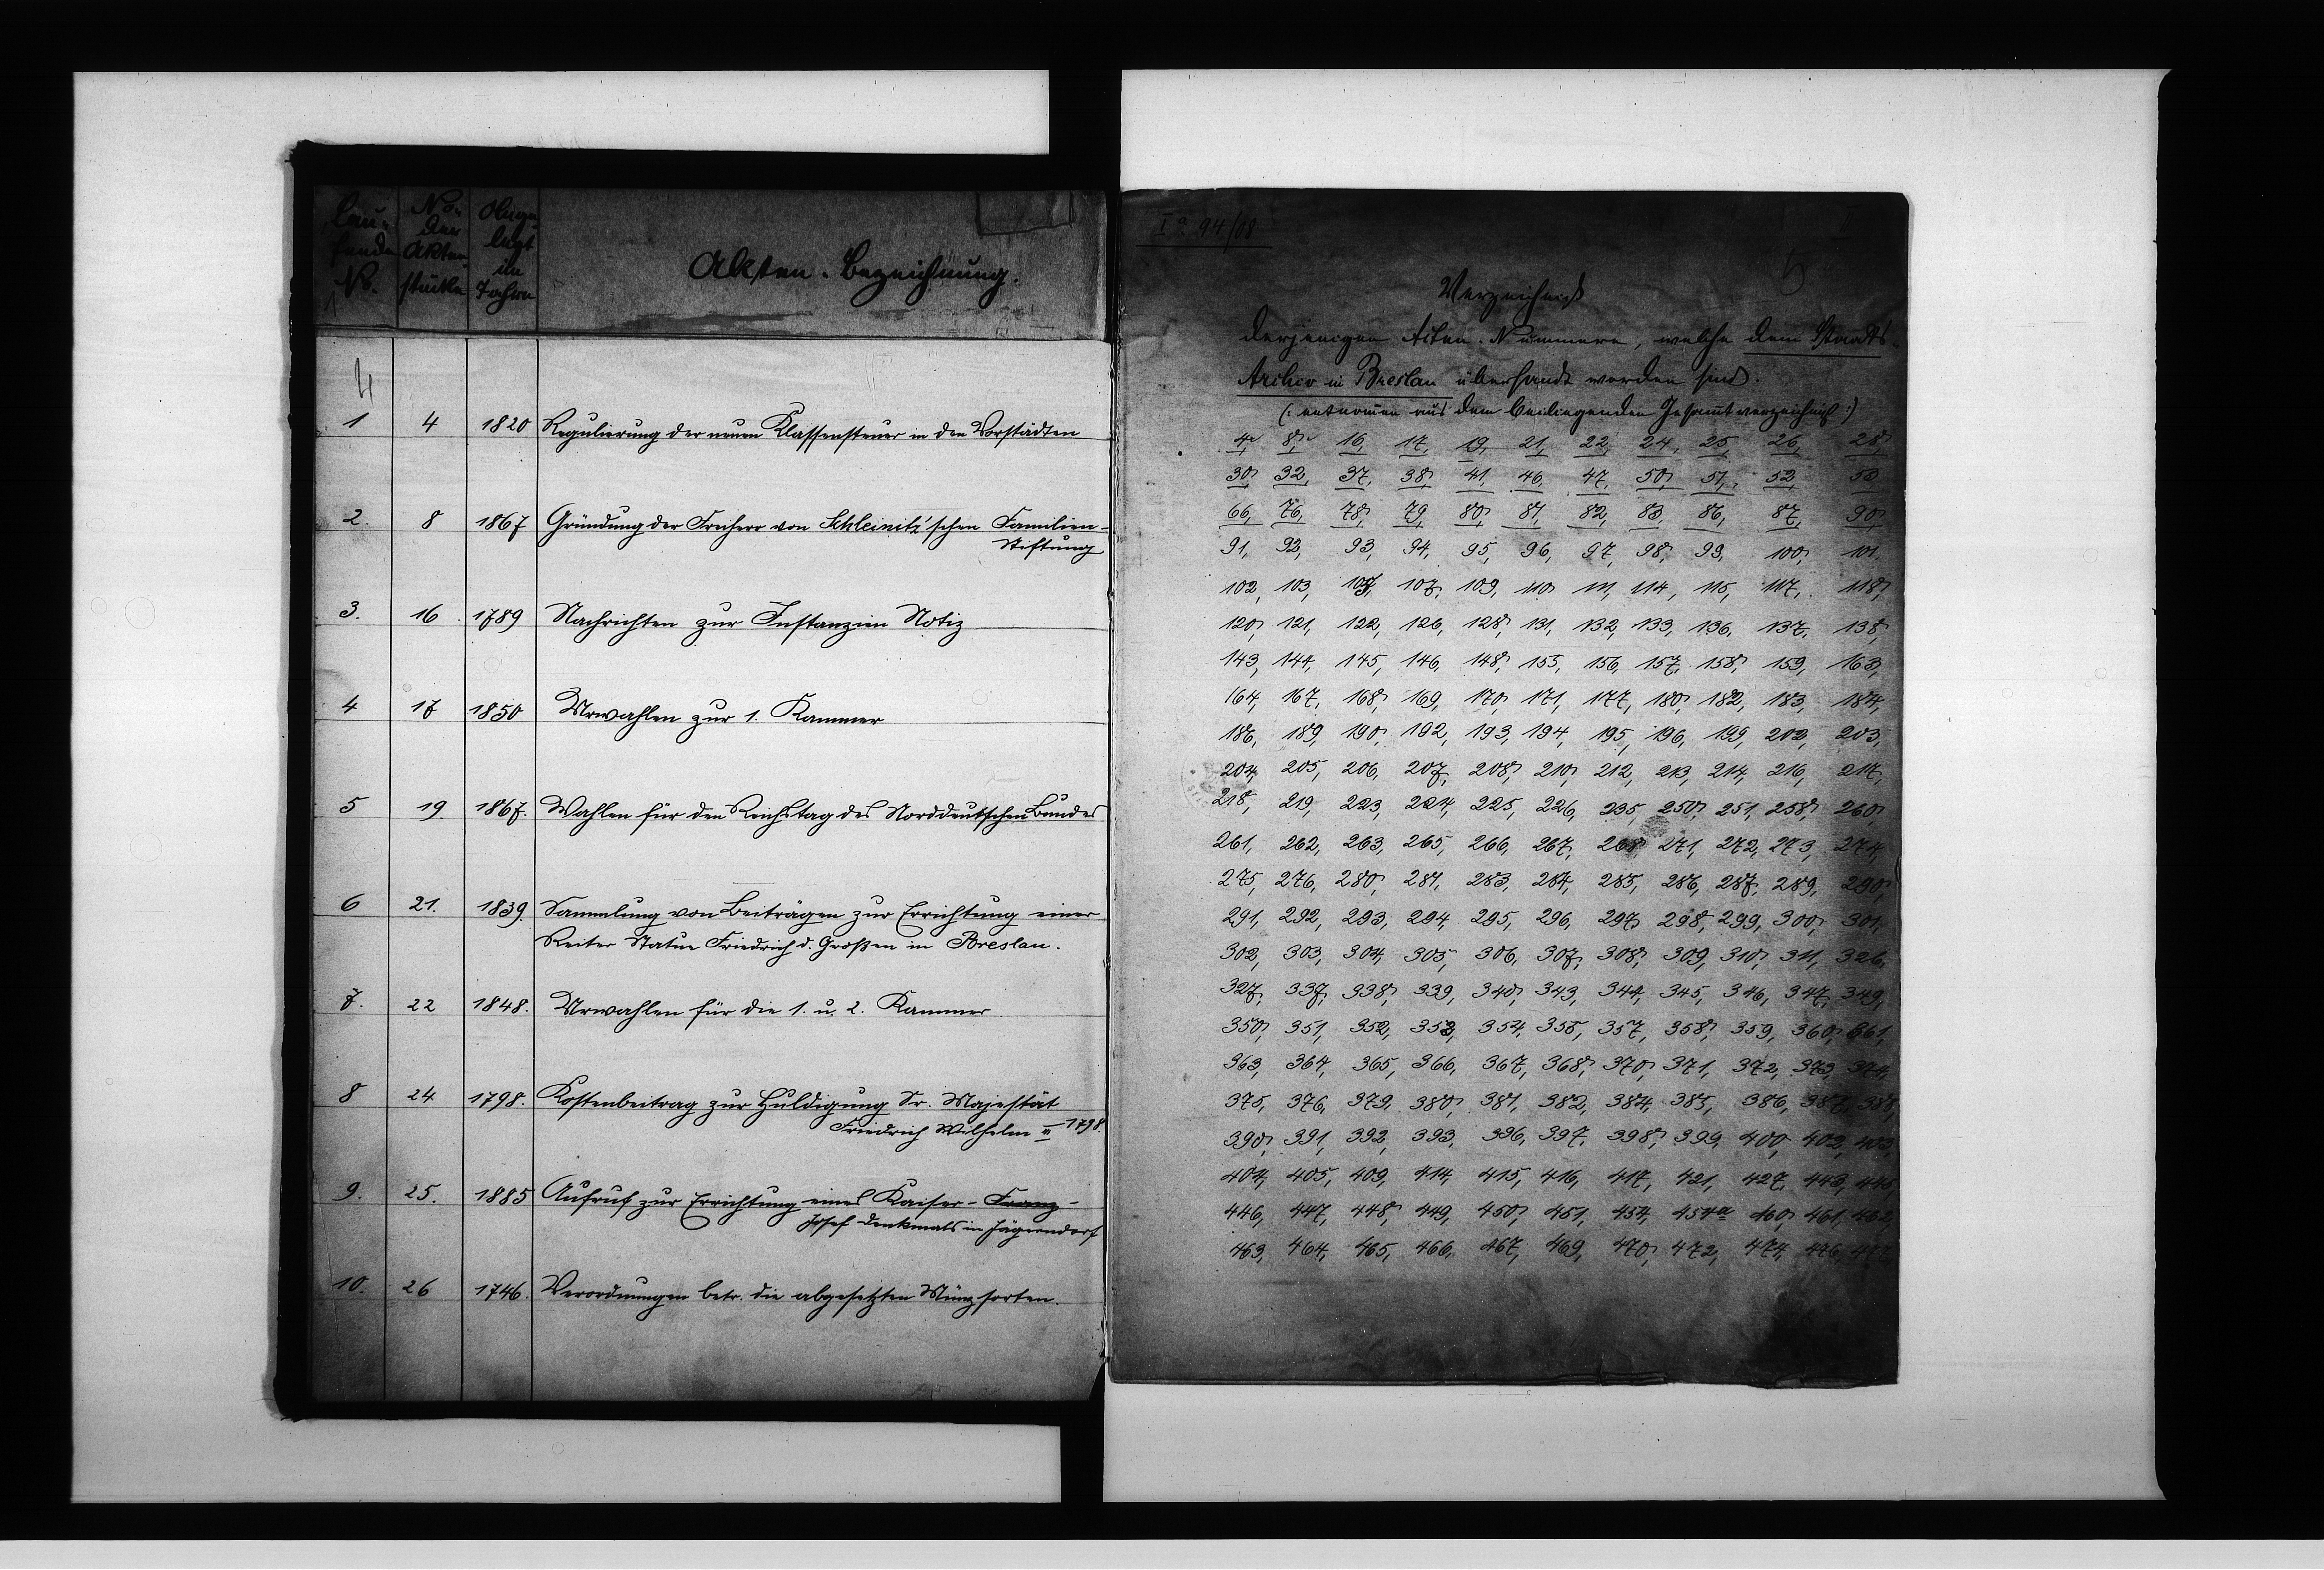 Laufende No.
No. der Aktenstücke
Angelegt im Jahre
Akten-Bezeichnung.
4
1 4 1820 Regulierung der neuen Klassensteuer in den Vorstädten
2. 8 1867 Gründung der Freiherr von Schleinitz'schen Familien-
Stiftung
3. 16 1789 Nachrichten zur Instanzien Notiz
4 17 1850 Urwahlen zur 1. Kammer
5 19. 1867. Wahlen für den Reichstag des Norddeutschen Bundes
6 21. 1839. Sammlung von Beiträgen zur Errichtung einer
Reiter Statue Friedrich d. Großen in Breslau.
7. 22 1848. Urwahlen für die 1. u. 2. Kammer
8 24 1798. Kostenbeitrag zur Huldigung Sr. Majestät
Friedrich Wilhelm III 1798.
9. 25. 1885 Aufruf zur Errichtung eines Kaiser-Franz-
Josef Denkmals in Jägerndorf
10. 26 1746. Verordnungen betr. die abgesetzten Münzsorten.
I a 94/08
5
Verzeichniß
derjenigen Akten-Nummern, welche dem Staats-
Archiv in Breslau übersandt worden sind.
(: entnomen aus dem beiliegenden Gesamtverzeichniß :)
4, 8, 16, 17, 19, 21, 22, 24, 25, 26, 28,
30, 32, 37, 38, 41, 46, 47, 50, 51, 52,
66, 76, 78, 79, 80, 81, 82, 83, 86, 87, 90,
91, 92, 93, 94, 95, 96, 97, 98, 99, 100, 101,
102, 103, 107, 109, 110, 111, 114, 115, 117, 118,
120, 121, 122, 126, 128, 131, 132, 133, 136, 137, 138,
143, 144, 145, 146, 148, 155, 156, 157, 158, 159, 163,
164, 167, 168, 169, 170, 171, 177, 180, 182, 183, 184,
186, 189, 190, 192, 193, 194, 195, 196, 199, 202, 203,
204, 205, 206, 207, 208, 210, 212, 213, 214, 216, 217,
218, 219, 223, 224, 225, 226, 235, 250, 251, 258, 260,
261, 262, 263, 265, 266, 267, 268, 271, 272, 273, 274,
275, 276, 280, 281, 283, 284, 285, 286, 287, 289, 290,
291, 292, 293, 294, 295, 296, 297, 298, 299, 300, 301,
302, 303, 304, 305, 306, 307, 308, 309, 310, 311, 326,
327, 337, 338, 339, 340, 343, 344, 345, 346, 347, 349,
350, 351, 352, 353, 354, 355, 357, 358, 359, 360, 361,
363, 364, 365, 366, 367, 368, 370, 371, 372, 373, 374,
375, 376, 379, 380, 381, 382, 384, 385, 386, 387, 388,
390, 391, 392, 393, 396, 397, 398, 399, 400, 402, 403,
404, 405, 409, 414, 415, 416, 417, 421, 427, 443,
446, 447, 448, 449, 450, 451, 454, 454a 460, 461, 462,
463, 464, 465, 466, 467, 469, 470, 472, 474, 476,